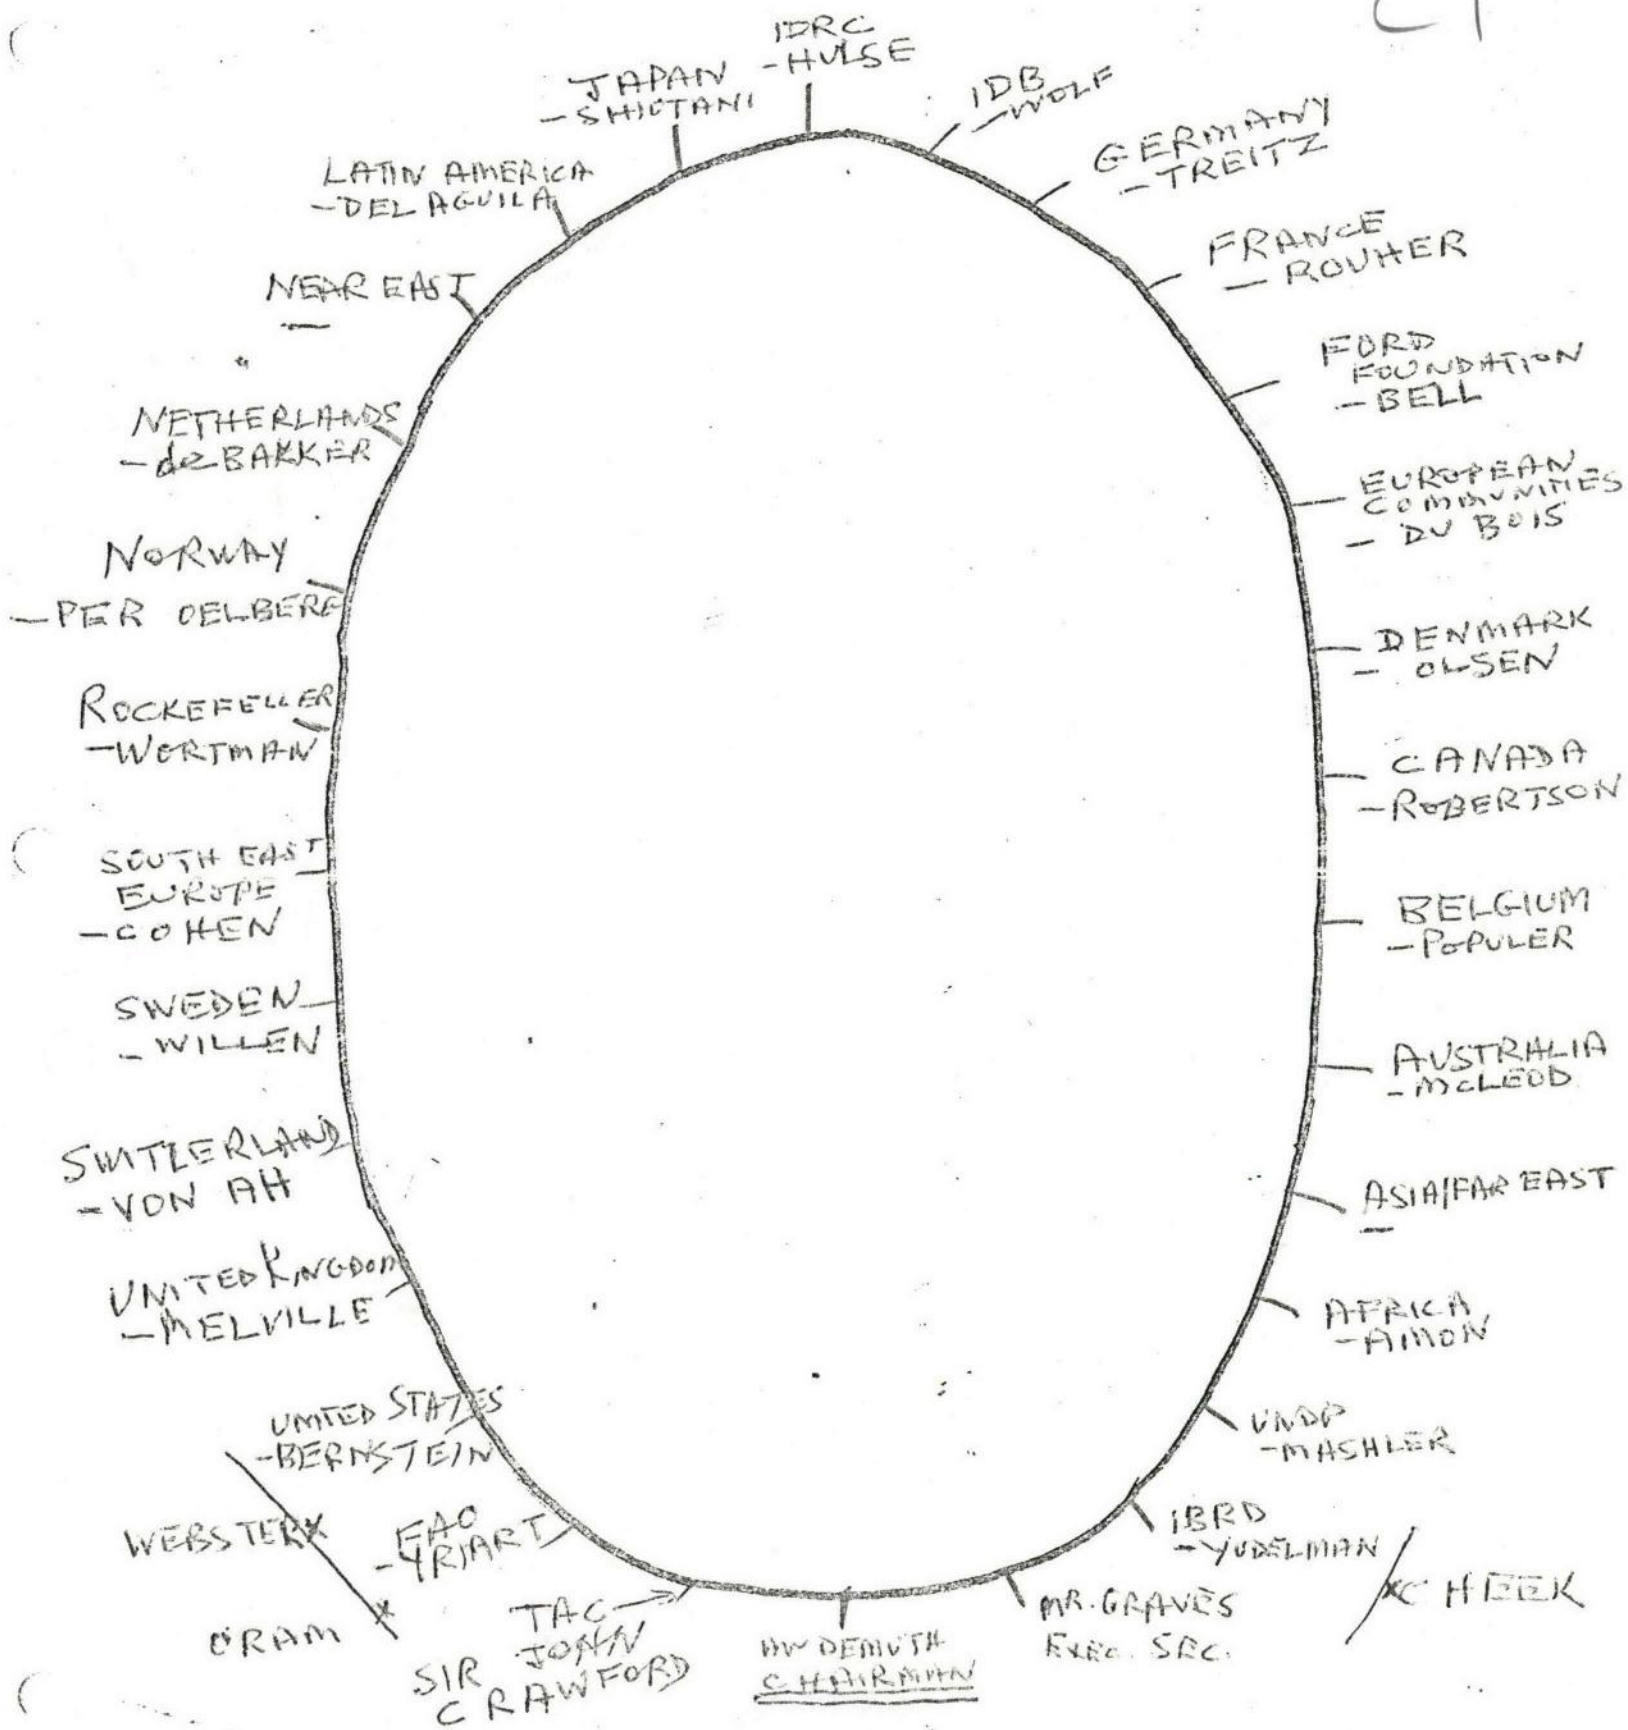 IDRC
-HULSE
IDB
-WOLF
GERMANY
-TREITZ
FRANCE
- ROUHER
FORD
FOUNDATION
-BELL
EUROPEAN
COMMUNITIES
- DU BOIS
DENMARK
- OLSEN
CANADA
-ROBERTSON
BELGIUM
-POPULER
AUSTRALIA
-McLEOD
ASIA/FAR EAST
-
AFRICA
-AMON
UNDP
-MASHLER
IBRD
-YUDELMAN
CHEEK
MR. GRAVES
EXEC. SEC.
DEMUTH
CHAIRMAN
TAC
JOHN
SIR CRAWFORD
FAO
-YRIART
ORAM
WEBSTER
UNITED STATES
-BERNSTEIN
UNITED KINGDOM
-MELVILLE
SWITZERLAND
-VON AH
SWEDEN
-WILLEN
SOUTH EAST
EUROPE
-COHEN
ROCKEFELLER
-WORTMAN
NORWAY
-PER OELBERG
NETHERLANDS
-de BAKKER
NEAR EAST
-
LATIN AMERICA
-DEL AGUILA
JAPAN
-SHIOTANI